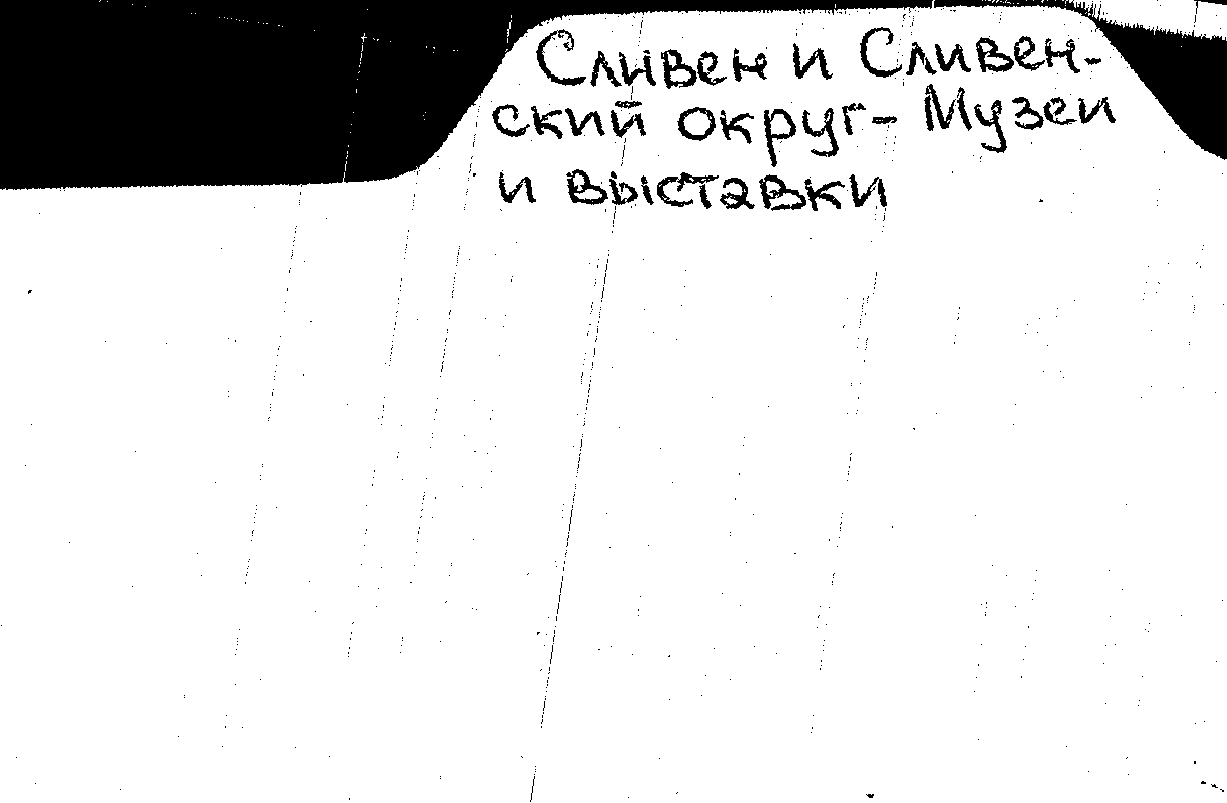 Сливен и Сливен-
ский округ - Музеи
и выставки